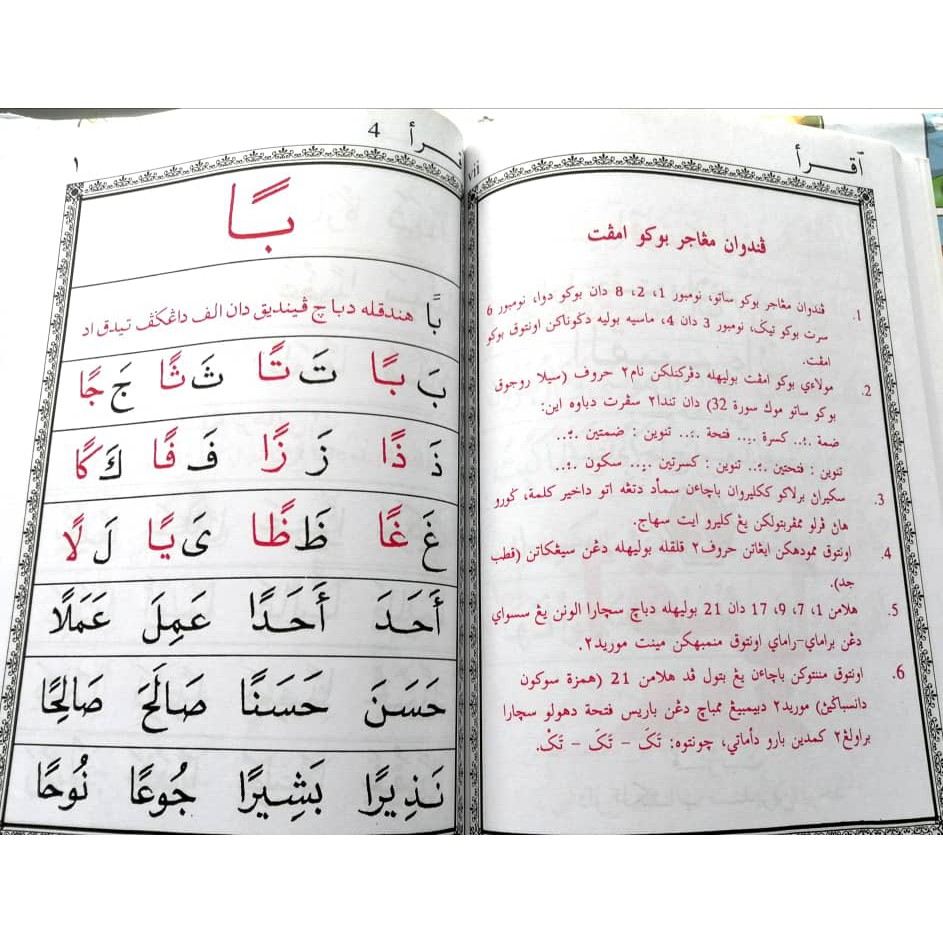 اقرأ
ڤندوان مڠاجر بوكو امڤت
1. ڤندوان مڠاجر بوكو ساتو، نومبور 1، 2، 8 دان بوكو دوا، نومبور 6
سرت بوكو تيݢ، نومبور 3 دان 4، ماسيه بوليه دݢوناكن اونتوق بوكو
امڤت.
2. مولاءي بوكو امڤت بوليهله دڤركنلكن نام٢ حروف (سيلا روجوق
بوكو ساتو موك سورة 32) دان تندا٢ سڤرت دباوه اين:
ضمة .ُ.. كسرة .ِ.. فتحة .َ.. تنوين : ضمتين .ٌ..
تنوين : فتحتين .ً.. تنوين : كسرتين .ٍ.. سكون .ْ..
3. سكيراڽ برلاكو ككليروان باچاءن سمأد دتڠه اتو داخير كلمة، ݢورو
هاڽ ڤرلو ممڤربتولكن يڠ كليرو ايت سهاج.
4. اونتوق ممودهكن ايڠاتن حروف٢ قلقله بوليهله دڠن سيڠكاتن (قطب
جد).
5. هلامن 1، 7، 9، 17 دان 21 بوليهله دباچ سچارا الونن يڠ سسواي
دڠن براماي-راماي اونتوق منمبهكن مينت موريد٢.
6. اونتوق مننتوكن باچاءن يڠ بتول ڤد هلامن 21 (همزة سوكون
دانسباݢيڽ) موريد٢ دبيمبيڠ ممباچ دڠن باريس فتحة دهولو سچارا
براولڠ٢ كمدين بارو دأماتي، چونتوه: تَكَ – تَكَ – تَكْ.
vii
اقرأ 4
١
بًا
بًا هندقله دباچ ڤينديق دان الف داڠكڤ تيدق اد
بَ بًا تَ تًا ثَ ثًا جَ جًا
ذَ ذًا زَ زًا فَ فًا كَ كًا
غَ غًا ظَ ظًا ىَ يًا لَ لًا
أَحَدَ أَحَدًا عَمِلَ عَمَلًا
حَسَنَ حَسَنًا صَالَحَ صَالِحًا
نَذِيرًا بَشِيرًا جُوعًا نُوحًا